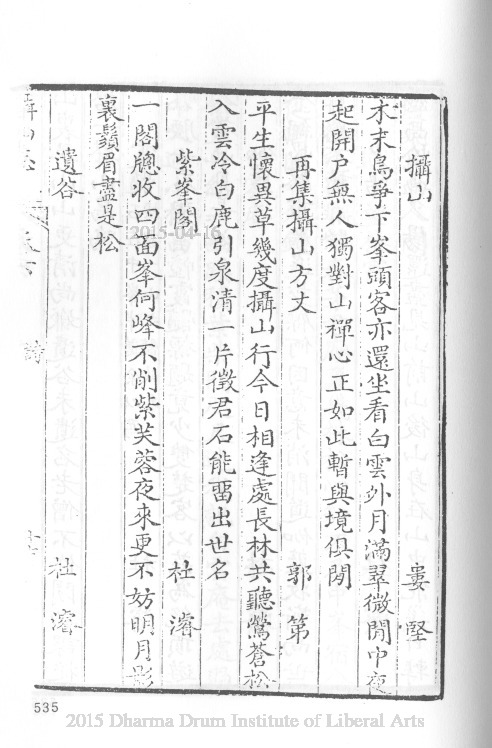 攝山　婁堅
木末鳥爭下峯頭客亦還坐看白雲外月滿翠微閒中夜
起開户無人獨對山禪心正如此暫與境俱閒
再集攝山方丈　郭第
平生懷異草幾度攝山行今日相逢處長林共聽鶯蒼松
入雲冷白鹿引泉清一片徵君石能畱出世名
紫峯閣　杜濬
一閣牕收四面峯何峰不削紫芙蓉夜來更不妨明月影
裏鬚眉盡是松
遺谷　杜濬
攝山志
詩
2015-04-16
535
2015 Dharma Drum Institute of Liberal Arts